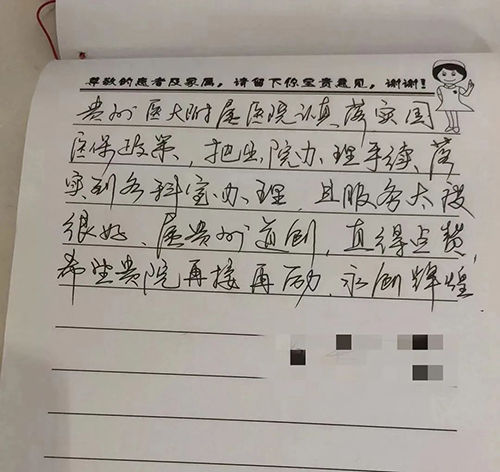 尊敬的患者及家属，请留下你宝贵意见，谢谢！
贵州医大附属医院认真落实国
医保政策，把出院办理手续、落
实到各科室办理，且服务太度
很好、属贵州首创，真得点赞，
希望贵院再接再励、永创辉煌